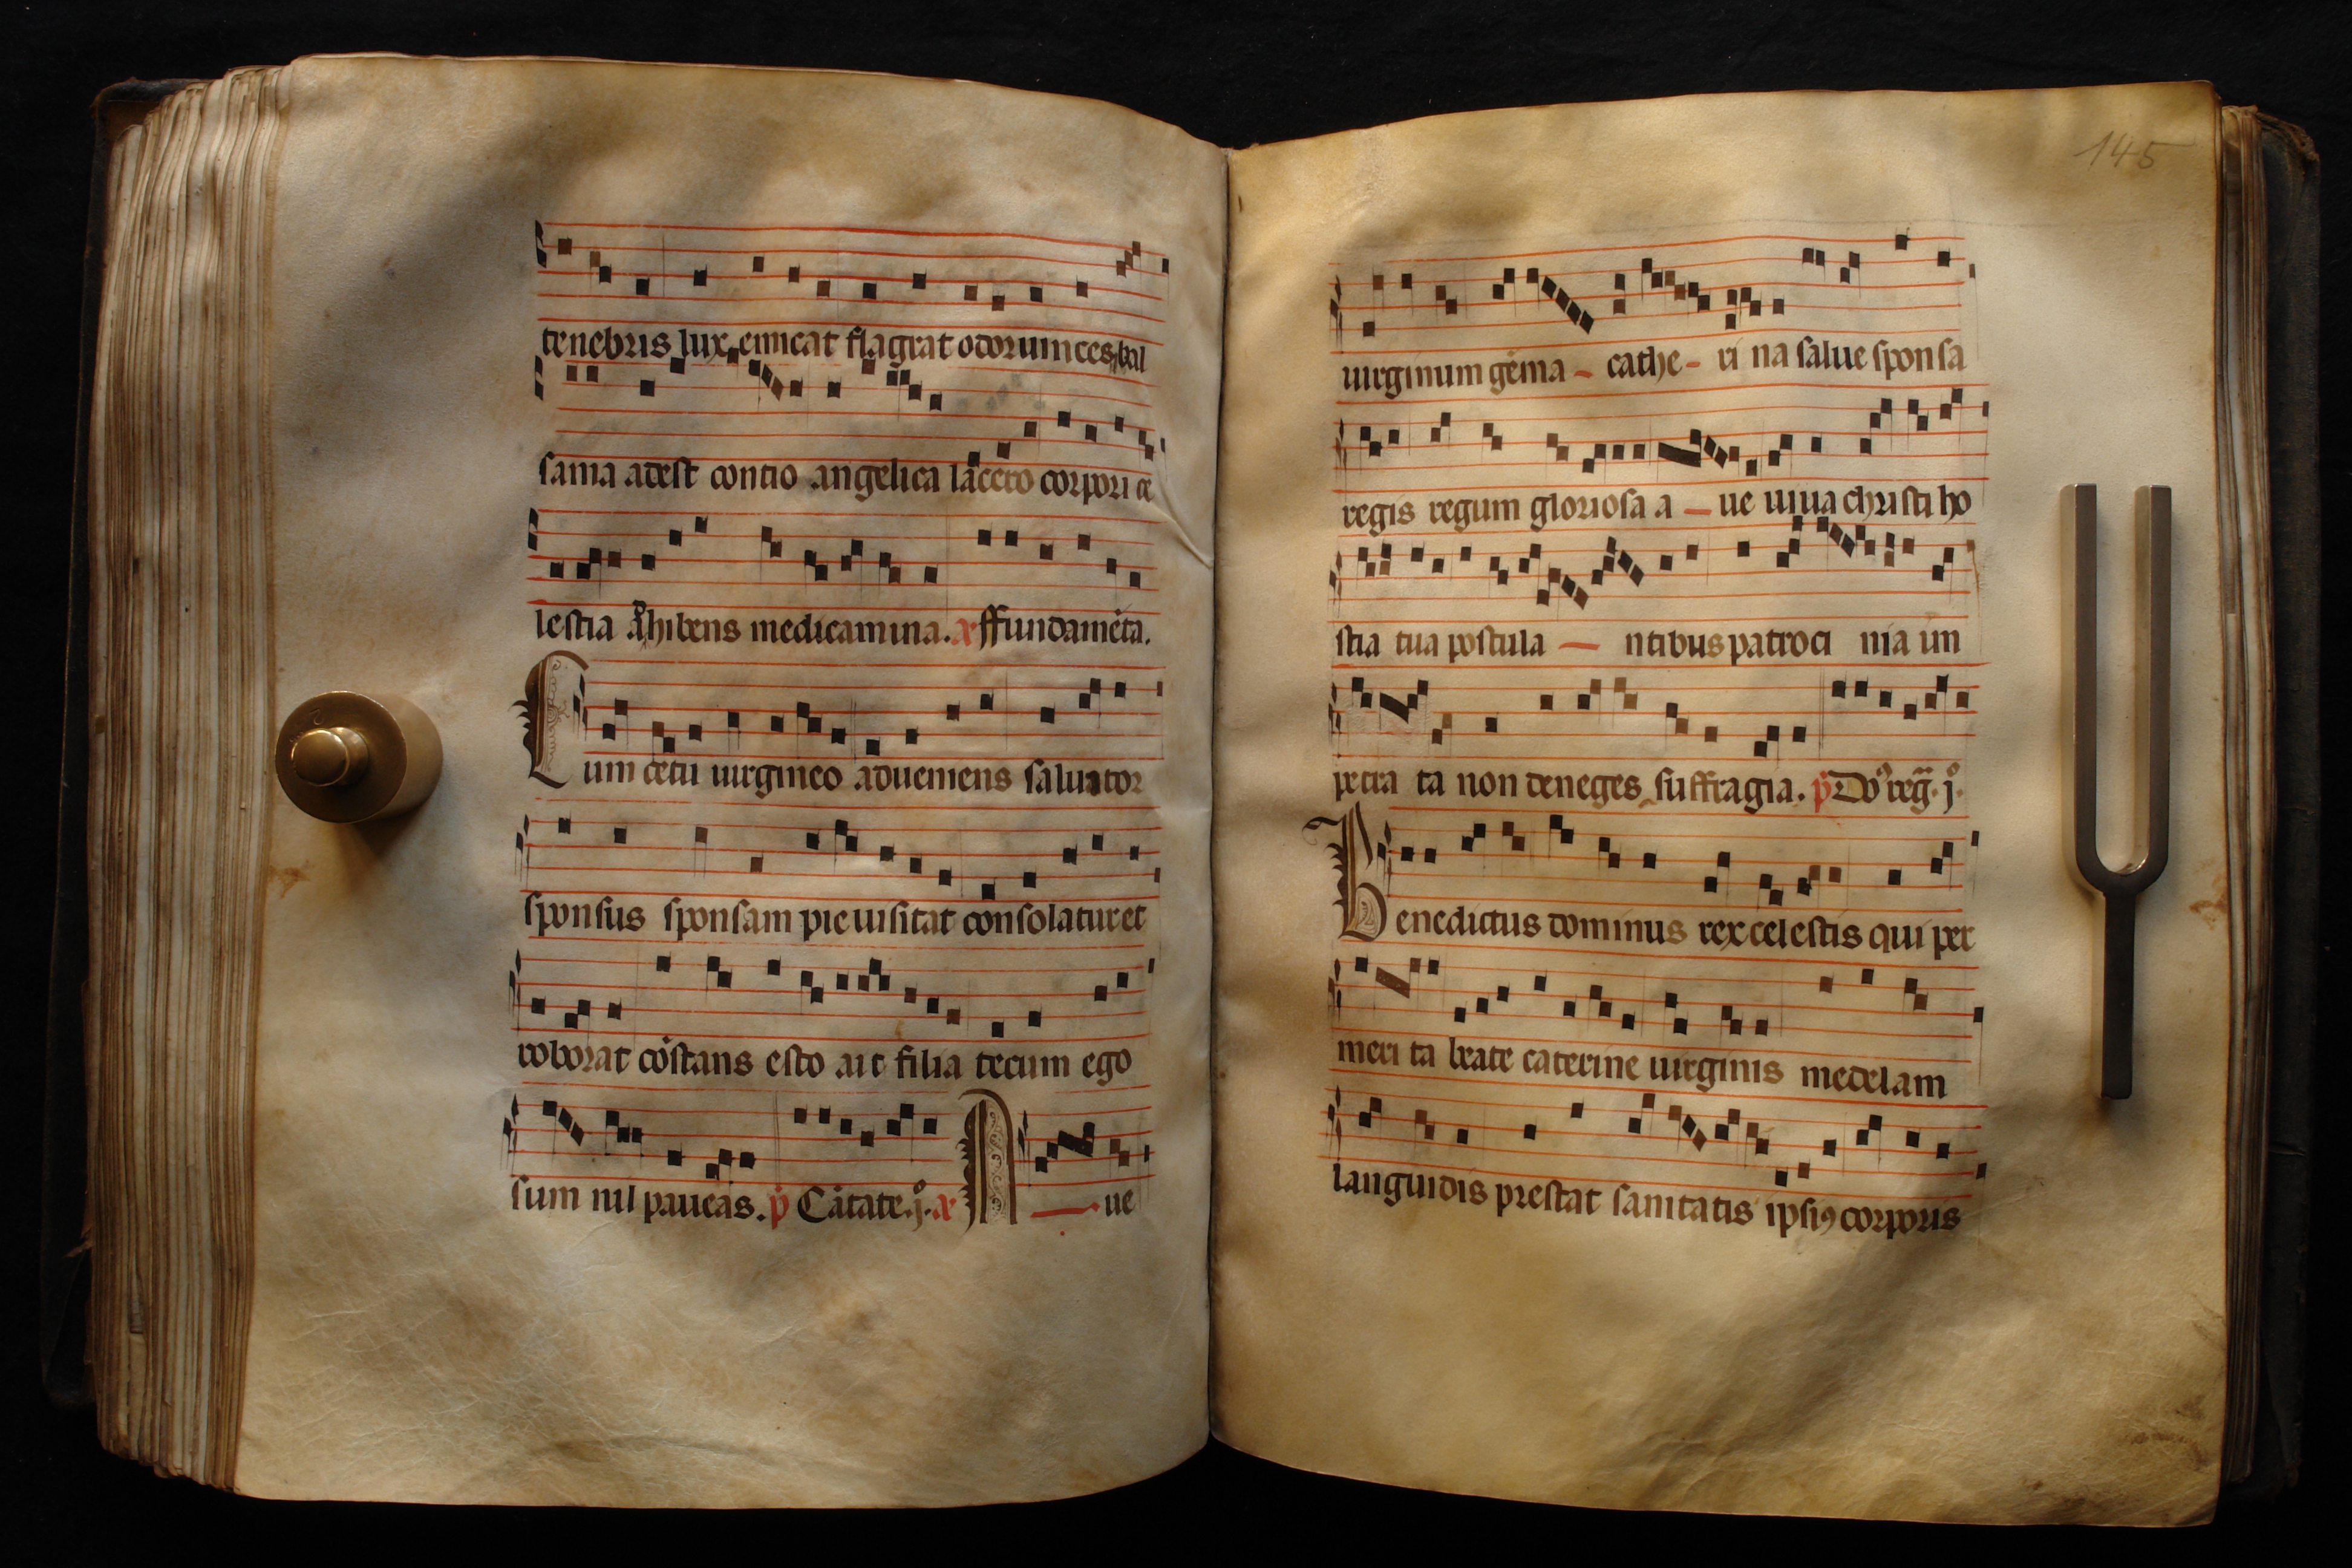 tenebris lux emicat flagrat odorum ces bal
sama adest contio angelica lacero corpori ce
lestia adhibens medicamina. ae ffundamēta.
Cum cetu uirgineo adueniens saluator
sponsus sponsam pie uisitat consolatur et
roborat cōstans esto ait filia tecum ego
sum nil paueas. p Cātate. j. ae A — ue
145
uirginum gēma - cathe - ri na salue sponsa
regis regum gloriosa a — ue uiua christi ho
stia tua postula — ntibus patroci nia im
petra ta non deneges suffragia. p Do reg. j.
Benedictus dominus rex celestis qui per
meri ta beate caterine uirginis medelam
languidis prestat sanitatis ipsiꝰ corporis